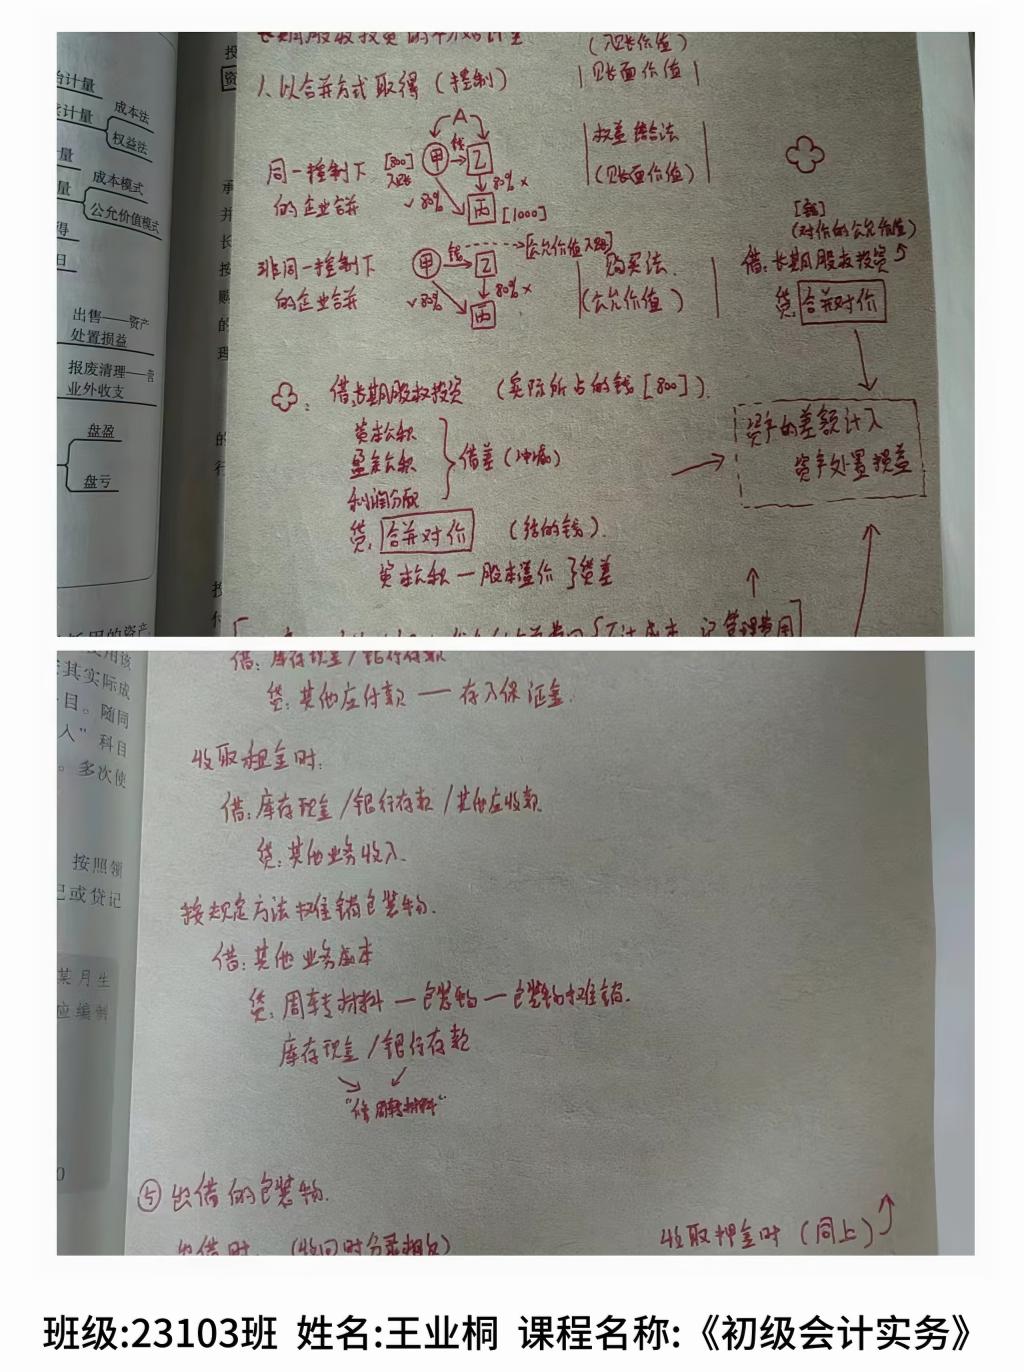 计量
成本法
计量
权益法
量
成本模式
量
公允价值模式
得
日
出售——资产
处置损益
报废清理——营
业外收支
盘盈
盘亏
投
资
长期股权投资的初始计量
(入账价值)
1、以合并方式取得(控制)
|账面价值|
A
同一控制下
的企业合并
[800]
入账
甲
钱
乙
✓80%
80% ×
丙
[1000]
权益结合法
(账面价值)
非同一控制下
的企业合并
甲
钱
[公允价值入账]
乙
✓80%
80% ×
丙
购买法
(公允价值)
[钱]
(对价的公允价值)
借:长期股权投资
贷:合并对价
资产的差额计入
资产处置损益
借:长期股权投资 (实际所占的钱[800]).
资本公积
盈余公积
利润分配
借差(冲减)
贷:合并对价 (给的钱).
资本公积—股本溢价 }贷差
管理费用
使用该
其实际成
目。随同
入”科目
。多次使
按照领
记或贷记
某月生
应编制
借:库存现金/银行存款
贷:其他应付款——存入保证金.
收取租金时:
借:库存现金/银行存款/其他应收款
贷:其他业务收入.
按规定方法摊销包装物.
借:其他业务成本
贷:周转材料—包装物—包装物摊销.
库存现金/银行存款
⑤出借的包装物.
出借时:(收回时分录相反)
收取押金时(同上)
班级:23103班 姓名:王业桐 课程名称:《初级会计实务》